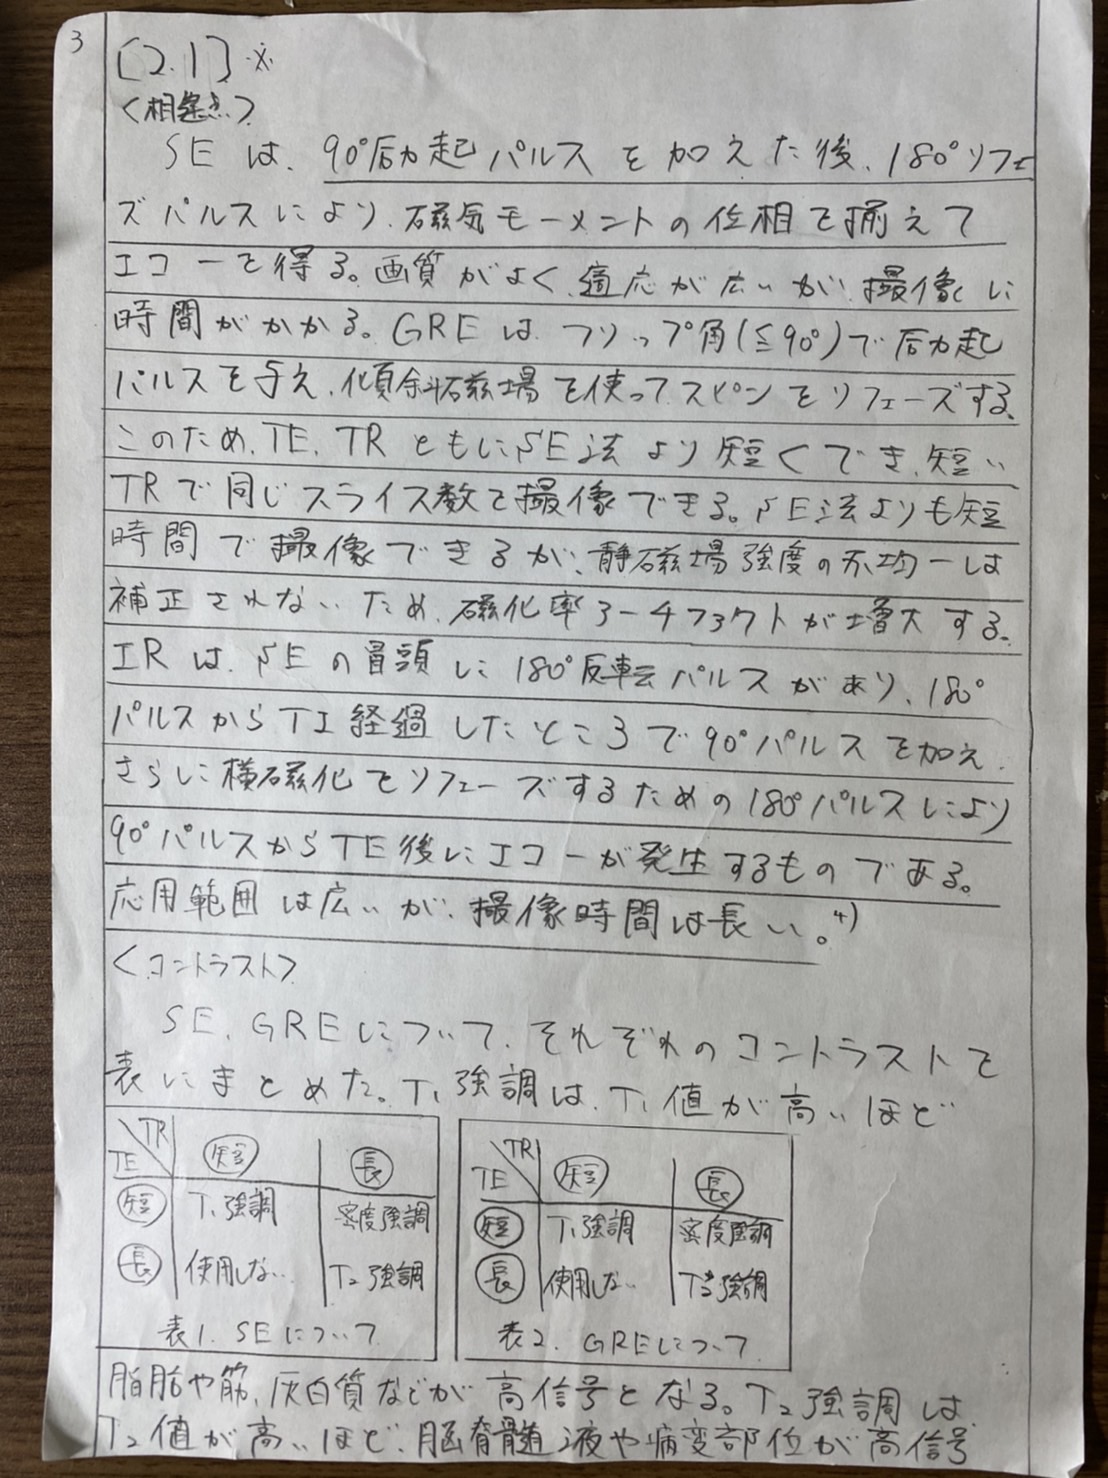 3
[2.1] ※
<相違点>
SEは、90°励起パルスを加えた後、180°リフェ
ズパルスにより、磁気モーメントの位相を揃えて
エコーを得る。画質がよく、適応が広いが、撮像に
時間がかかる。GREは、フリップ角(≦90°)で励起
パルスを与え、傾斜磁場を使ってスピンをリフェーズする。
このため、TE、TRともにSE法より短くでき、短い
TRで同じスライス数を撮像できる。SE法よりも短
時間で撮像できるが、静磁場強度の不均一は
補正されないため、磁化率アーチファクトが増大する。
IRは、SEの冒頭に180°反転パルスがあり、180°
パルスからTI経過したところで90°パルスを加え、
さらに横磁化をリフェーズするための180°パルスにより
90°パルスからTE後にエコーが発生するものである。
応用範囲は広いが、撮像時間は長い。4)
<コントラスト>
SE、GREについて、それぞれのコントラストを
表にまとめた。T₁強調は、T₁値が高いほど
TR
TE 短 長
短 T₁強調 密度強調
長 使用しない T₂強調
表1. SEについて
TR
TE 短 長
短 T₁強調 密度強調
長 使用しない T₂*強調
表2. GREについて
脂肪や筋、灰白質などが高信号となる。T₂強調は
T₂値が高いほど、脳脊髄液や病変部位が高信号